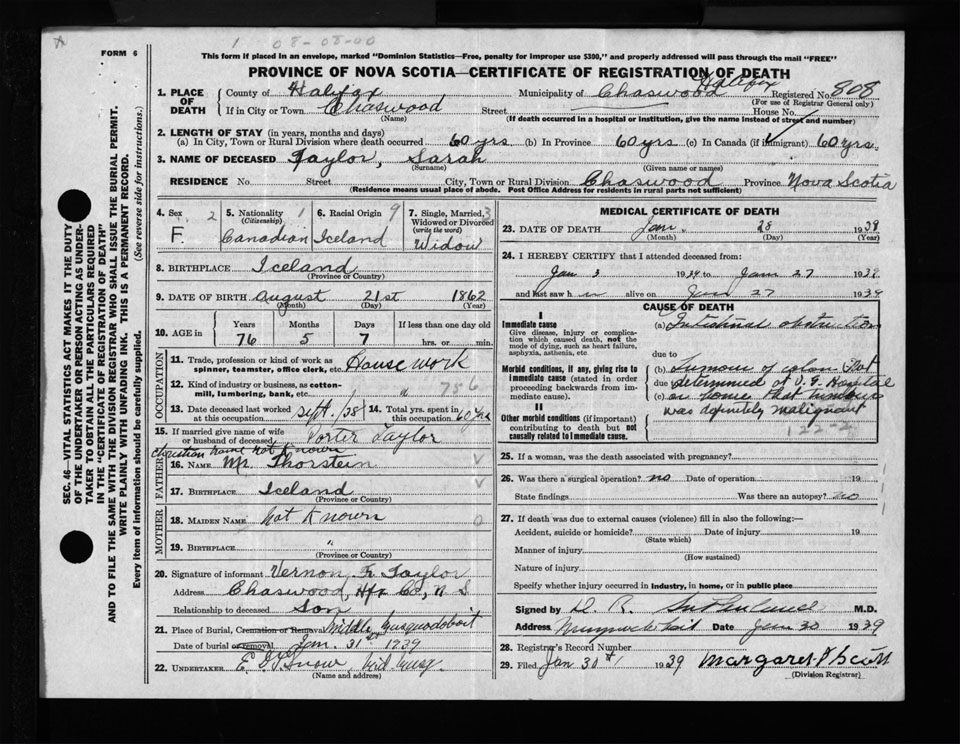 1 08-08-00
FORM 6
This form if placed in an envelope, marked "Dominion Statistics—Free, penalty for improper use $300," and properly addressed will pass through the mail "FREE"
PROVINCE OF NOVA SCOTIA—CERTIFICATE OF REGISTRATION OF DEATH
1. PLACE OF DEATH County of Halifax Municipality of Chaswood Halifax Registered No. 808
(For use of Registrar General only)
If in City or Town Chaswood Street House No.
(Name) (If death occurred in a hospital or institution, give the name instead of street and number)
2. LENGTH OF STAY (in years, months and days)
(a) In City, Town or Rural Division where death occurred 60 yrs (b) In Province 60 yrs (c) In Canada (if immigrant) 60 yrs.
3. NAME OF DECEASED Taylor, Sarah
(Surname) (Given name or names)
RESIDENCE No. Street City, Town or Rural Division Chaswood Province Nova Scotia
(Residence means usual place of abode. Post Office Address for residents in rural parts not sufficient)
SEC. 46—VITAL STATISTICS ACT MAKES IT THE DUTY
OF THE UNDERTAKER OR PERSON ACTING AS UNDER-
TAKER TO OBTAIN ALL THE PARTICULARS REQUIRED
IN THE "CERTIFICATE OF REGISTRATION OF DEATH"
AND TO FILE THE SAME WITH THE DIVISION REGISTRAR WHO SHALL ISSUE THE BURIAL PERMIT.
WRITE PLAINLY WITH UNFADING INK. THIS IS A PERMANENT RECORD.
Every item of information should be carefully supplied. (See reverse side for instructions.)
4. Sex 2 5. Nationality 1 6. Racial Origin 9 7. Single, Married, 3
(Citizenship) Widowed or Divorced
(write the word)
F. Canadian Iceland Widow
8. BIRTHPLACE Iceland
(Province or Country)
9. DATE OF BIRTH August 21st 1862
(Month) (Day) (Year)
10. AGE in Years Months Days If less than one day old
76 5 7 hrs. or min.
OCCUPATION
11. Trade, profession or kind of work as
spinner, teamster, office clerk, etc. House work
12. Kind of industry or business, as cotton-
mill, lumbering, bank, etc. " 756
13. Date deceased last worked at this occupation Sept./38 14. Total yrs. spent in this occupation 60 yrs
15. If married give name of wife
or husband of deceased Porter Taylor
Christian name not known
FATHER
16. NAME Mr. Thorstein
17. BIRTHPLACE Iceland
(Province or Country)
MOTHER
18. MAIDEN NAME not known 0
19. BIRTHPLACE "
(Province or Country)
20. Signature of informant Vernon F. Taylor
Address Chaswood, Hfx Co, N S
Relationship to deceased Son
21. Place of Burial, Cremation or Removal Middle Musquodoboit
Date of burial or removal Jan. 31st 1939
22. UNDERTAKER
(Name and address)
MEDICAL CERTIFICATE OF DEATH
23. DATE OF DEATH Jan. 28 1939
(Month) (Day) (Year)
24. I HEREBY CERTIFY that I attended deceased from:
Jan 3 1939 to Jan 27 1939
and last saw h alive on Jan 27 1939
CAUSE OF DEATH
I
Immediate cause
Give disease, injury or complica-
tion which caused death, not the
mode of dying, such as heart failure,
asphyxia, asthenia, etc
(a) Intestinal obstruction
due to
Morbid conditions, if any, giving rise to
immediate cause (stated in order
proceeding backwards from im-
mediate cause).
(b) Tumour of colon Not
due determined at V. G. Hospital
(c) or home that tumour
was definitely malignant
II
Other morbid conditions (if important)
contributing to death but not
causally related to immediate cause.
122-2
25. If a woman, was the death associated with pregnancy?
26. Was there a surgical operation? no Date of operation 19
State findings Was there an autopsy? no
27. If death was due to external causes (violence) fill in also the following:—
Accident, suicide or homicide? Date of injury 19
(State which)
Manner of injury
(How sustained)
Nature of injury
Specify whether injury occurred in industry, in home, or in public place
Signed by D. R. Sutherland M.D.
Address Date Jan 30 1939
28. Registrar's Record Number
29. Filed Jan 30th 1939 Margaret
(Division Registrar)